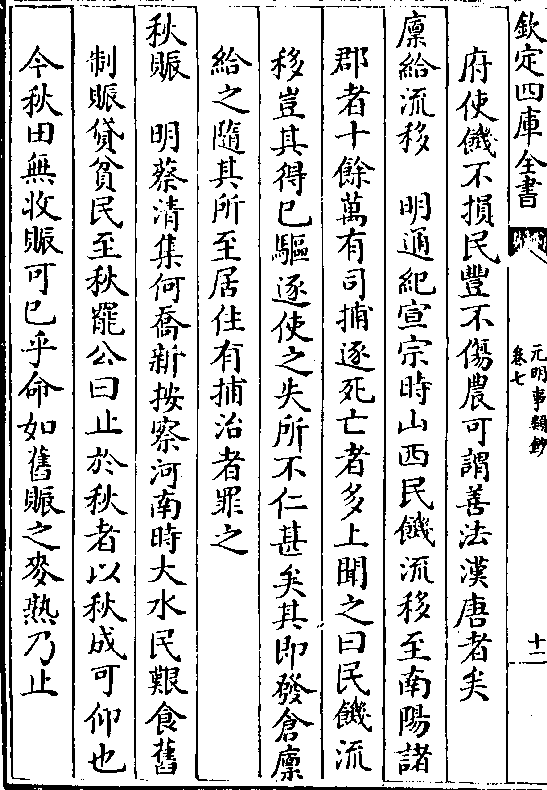 欽定四庫全書
元明事類鈔
卷七
十二
府使饑不損民豐不傷農可謂善法漢唐者矣
廪給流移 明通紀宣宗時山西民饑流移至南陽諸
郡者十餘萬有司捕逐死亡者多上聞之曰民饑流
移豈其得已驅逐使之失所不仁甚矣其即發倉廪
給之隨其所至居住有捕治者罪之
秋賑 明蔡清集何喬新按察河南時大水民艱食舊
制賑貸貧民至秋罷公曰止於秋者以秋成可仰也
今秋田無收賑可已乎命如舊賑之麥熟乃止